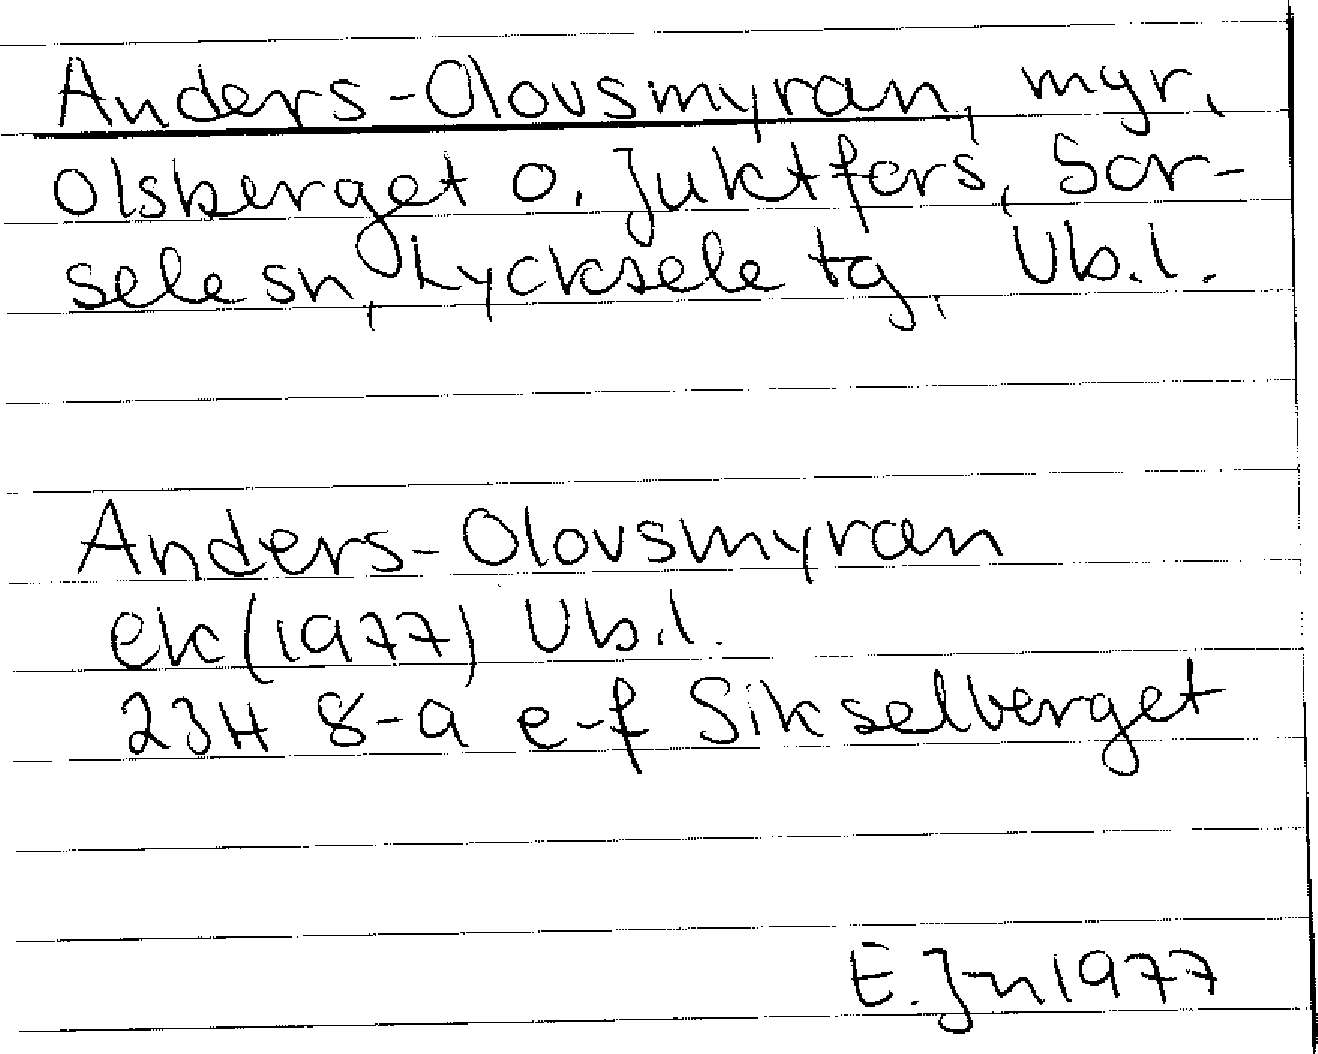 Anders-Olovsmyran, myr,
Olsberget o. Juktfors, Sor-
sele sn, Lycksele tg, Vb.l.
Anders-Olovsmyran
ek (1977) Vb.l.
23H 8-9 e-f Sikselberget
E. Jn 1977